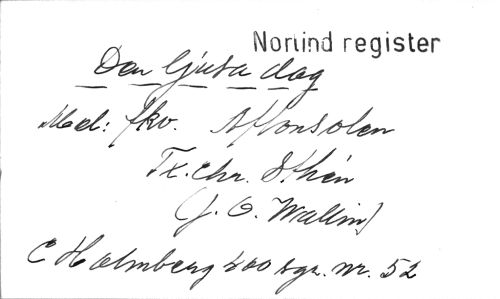 Norlind register
Den ljusa dag
Mel: fkv. Aftonsolen
Tx. Chr. Sthén
(J. O. Wallin)
C Holmberg 200 sgr. nr. 52